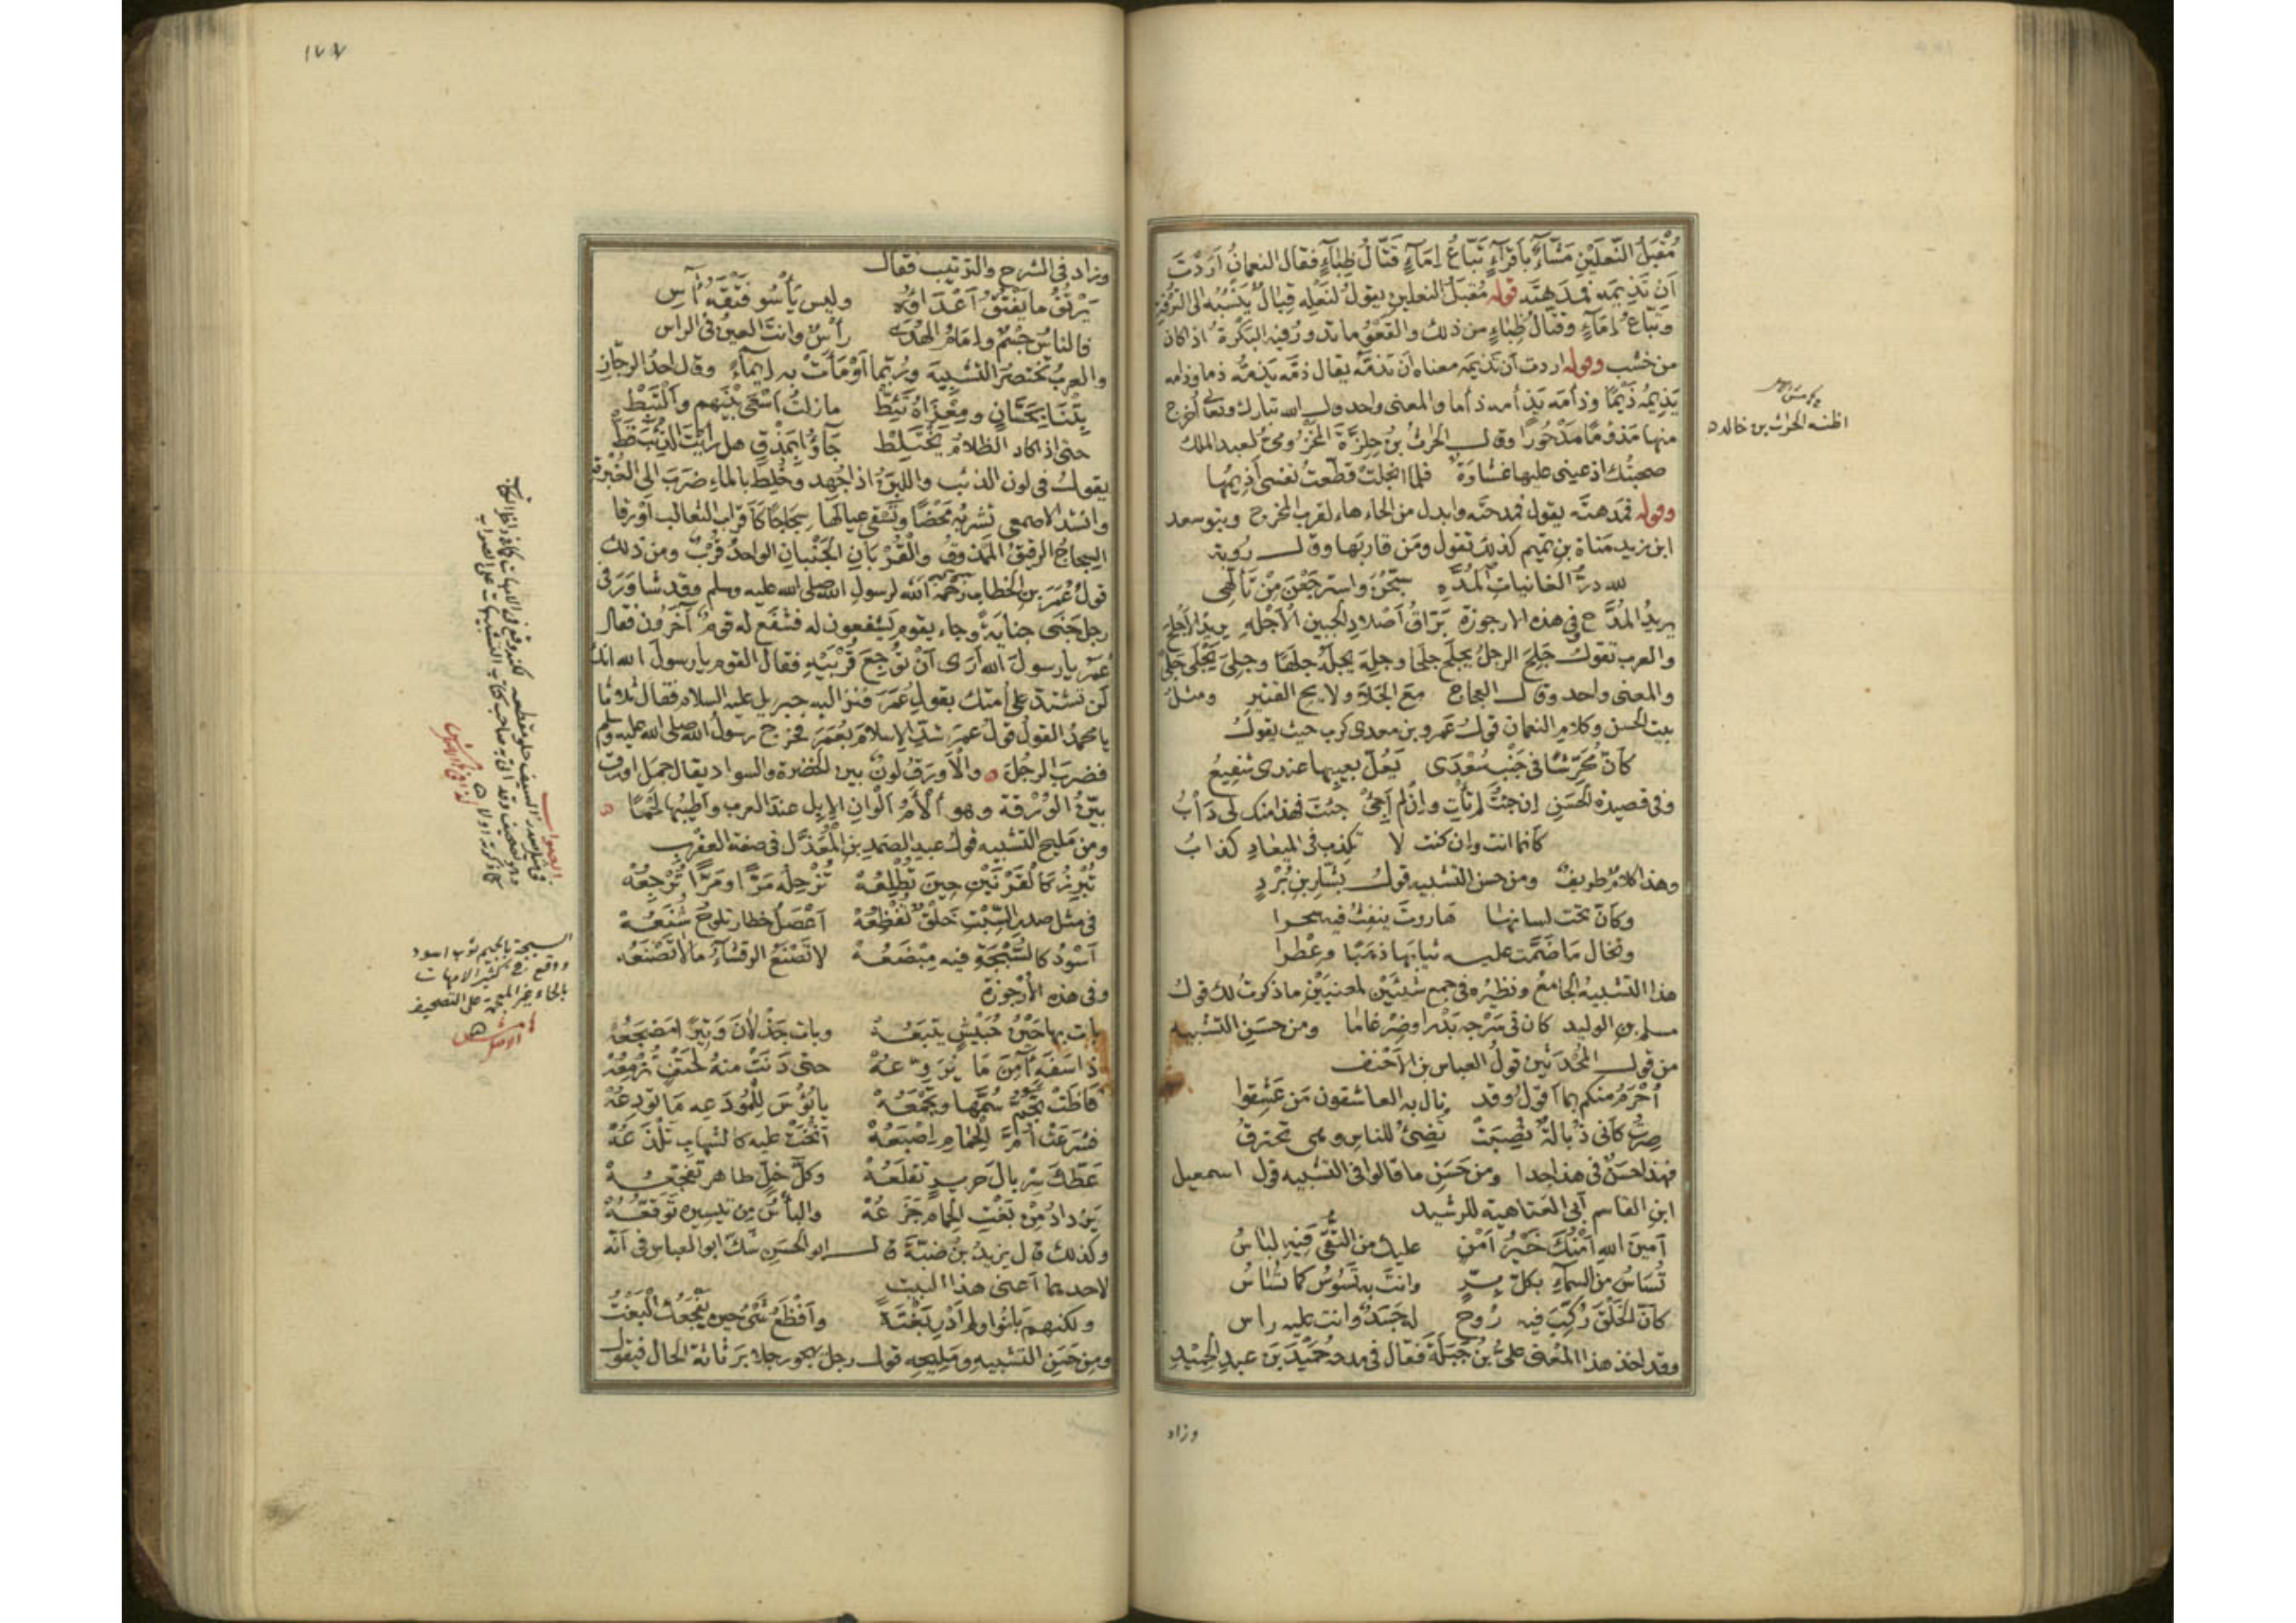 مُقْبَلَ النَّعلَيْنِ مَشَّاءٌ بأَقْرَآءٍ تَبّاعُ إمَآءٍ قَتَّالُ ظِبَآءٍ فقال النعمانُ اَرَدْتَ
اَن تَذِيمَه فمَدَهتَه قوله مُقبَلَ النعلين يقولُ لنَعْلِه قِبالٌ يَنْسُبُه الى الترفُّهِ
وتَبّاعُ إمَآءٍ وقتّالُ ظِبَاءٍ من ذلك والقَعْوُ ما تدورُ فيه البَكْرةُ اذا كان
من خَشب وقوله اردت اَن تَذِيمَه معناه اَن تَذمَّه يقال ذمَّه يَذمُّه ذما وذامه
يَذِيمُه ذَيْمًا وذأمه يَذأمه ذأما والمعنى واحد وقال الله تبارك وتعالى اُخرج
منها مَذؤمًا مَدْحُورًا وقال الحَرثُ بنُ حِلِزَةَ المخزومىُّ لعبد الملك
صحبتُك اذ عينى عليها غشاوَةٌ فلما انجلت قطّعتُ نفسى اَذِيمُها
وقوله فمَدهتَه يقول فمدحتَه وابدل من الحاء هاء لقرب المخرج وبنو سعد
ابن زيد مَناة بن تميم كذلك تقول ومَن قاربَها وقال رُؤبة
لله درُّ الغانيات المُدَّهِ سبّحْنَ واسترجَعْنَ مِنْ تَأَلُّهى
يريدُ المُدَّح وفى هذه الارجوزة بَرّاقُ اَصْلادِ الجبين الاَجْلَهِ يريدُ الاَجلح
والعرب تقول جَلِحَ الرجلُ يجلَح جلحًا وجلِهَ يجلَهُ جلَهًا وجلِىَ يَجْلَى جَلًى
والمعنى واحد وقال العجاج مع الجَلا ولايح القتير ومثل
بيت الحسن وكلام النعمان قولُ عَمرو بن معدى كرب حيث يقول
كأنّ مُحَرِّشًا فى جَنْب سُعْدَى يَعُلّ بعيبها عندى شفيعُ
وفى قصيدة للحَسَنِ إن جئتُ لم تأتِ وإن لم اَجِئْ جئتَ فهذا منك لى دَأْبُ
كأنما انت وان كنت لا تكذب فى الميعادِ كذابُ
وهذا كلامٌ طريفٌ ومن حسن التشبيه قولُ بشّارِ بنِ بُرْدٍ
وكأنّ تحت لسانها هاروتَ ينفثُ فيه سحرا
وتخال مَا ضَمَّت عليه ثيابَها ذهَبًا وعِطْرا
هذا التشبيهُ الجامعُ ونظيرُه فى جمع شيئَيْن لمعنيَيْن ما ذكرتُ لك قولُ
مسلم بن الوليد كأن فى سَرْجِه بَدْرا وضِرْغامَا ومن حَسَنِ التشبيه
من قول المُحْدَثينَ قولُ العباس بن الاَحْنَف
اُحْرَمُ منكم بما اَقولُ وقد نال به العاشقون مَن عَشِقوا
صِرْتُ كأنى ذُبالةٌ نُصِبَتْ تُضئُ للناس وهى تحترقُ
فهذا حَسَنٌ فى هذا جدا ومن حَسَنِ ما قالوا فى التشبيه قول اسمعيل
ابن القاسم اَبى العَتاهية للرشيد
اَمينَ اللهِ اَمْنُكَ خَيْرُ اَمْنٍ عليك من التُّقَى فيه لباسُ
تُسَاسُ من السمآءِ بكلّ بِرٍّ وانتَ به تَسُوسُ كما تُسَاسُ
كأنّ الخَلْقَ رُكِّبَ فيه رُوحٌ له جَسَدٌ وانت عليه راس
وقد اخذ هذا المَعْنى علىُّ بنُ جَبَلَة فقال فى مدحه حُمَيْدَ بنَ عبدِ الحميد
اظنه الحرث بن خالد
وزاد
١٧٧
وزاد فى الشرح والترتيب فقال
يَرْتُقُ ما يَفْتُقُ اَعْدَاؤُه وليس يَأْسُو فَتْقَهُ آسِ
فالناسُ جِسْمٌ وإمَامُ الهُدَى رأسٌ وانتَ العينُ فى الراس
والعربُ تختصرُ التشبيهَ ورُبَّما اَوْمَأَتْ به إيمآءً وقال احدُ الرجّاز
بِتْنَا بحَسَّانٍ ومِعْزَاهُ تَئِطّ مازلتُ اَسْعَى بَيْنَهم وَاَلْتَبِطْ
حتى اذا كاد الظلامُ يَخْتَلِطْ جَآؤُا بِمَذْقٍ هل رَاَيْتَ الذِّئْبَ قَطّ
يقول فى لون الذئب واللبنُ اذا جُهد وخُلِط بالماءِ ضَرَبَ الى الغُبْرةِ
وانشد الاصمعى تَشربُه مَحْضًا وتَسْقى عيالَها سَجاجًا كأقراب الثعالب اَورقا
السِجاجُ الرقيقُ المَمذوقُ والقُرْبَانِ الجَنْبانِ الواحدُ قُرْبٌ ومن ذلك
قولُ عُمَرَ بن الخطاب رَحِمَه الله لرسول الله صلى الله عليه وسلم وقد شاوَرَه فى
رجل جَنَى جنايَةً وجاء يقوم يَشفعون له فشَفَع له قومٌ آخَرُون فقال
عُمَر يا رسولَ الله اَرَى اَنْ تُوجِعَ قُرْبَيْهِ فقال القوم يا رسولَ الله انك
لن تشتدّ على اُمتك بقول عُمَرَ فنزل اليه جبريل عليه السلام فقال ثلاثًا
يا محمدُ القولُ قولُ عمرَ شُدَّ الإسلامَ بعُمَرَ فخرج رسولُ الله صلى الله عليه وسلم
فضربَ الرجُلَ والاَورقُ لونٌ بين الخُضرة والسواد يقال جمل اورق
بَيّنُ الوُرْقة وهو اَلْأَمُ اَلْوَانِ الإبِل عند العرب واَطيبُها لَحْمًا
ومن مليح التشبيه قولُ عبدِ الصمد بنِ المُعَذَّل فى صفة العقرب
تُبْرِزُ كالقَرْنَيْنِ حِينَ تُطْلِعُهْ تُزْحِلُه مَرًّا ومَرًّا تُرْجِعُهْ
فى مثل صدر السِّبْتِ خَلْقٌ تُفْظِعُهْ اَعْصَلُ خطّار تلوحُ شُنَعُهْ
اَسْوَدُ كالسُّبْجَةِ فيه مِبْضَعُهْ لا تَصْنَعُ الرقشآءُ ما لا تَصْنَعُه
وفى هذه الاُرجوزة
بات بها حَيْنُ حُبَيْشٍ يتبعُهْ وبات جَذْلانَ وَثِيرًا مَضجَعُهْ
ذا سَفَهٍ آمِنَ مَا يُرَوّعُهْ حتى دَنَتْ منهُ لِحَتْفٍ تُزْمِعُهْ
فَاظَتْ تُجِمُّ سُمَّها وتَجْمَعُهْ يا بُؤْسَ للمُودَعِه مَا تُودِعُهْ
فشَرَعَتْ اُمُّ الحِمَامِ إصْبَعَهْ اَنْحَتْ عليه كالشهابِ تَلْذَعُهْ
عَطَّكَ سِرْبالَ حرير تَقلَعُهْ وكلّ خِلٍّ ظاهر تفجّعُهْ
يَزدادُ مِنْ بَغْتِ الحِمامِ جَزَعُهْ واليأسُ مِن تيسيره تَوَقُّعُهْ
وكذلك قال يزيدُ بنُ ضَبّةَ قال ابو الحَسَنِ شكّ ابو العباس فى اَنّه
لاحدهما اَعنى هذا البيت
ولكنهم بَانُوا ولم اَدْرِ بَغْتَةً واَفْظَعُ شَىْءٍ حين يَفْجَؤُكَ البَغْتُ
ومن حَسَنِ التشبيهِ ومَليحِه قول رجل يهجو رجلا برَثاثة الحال فيقول
الصواب
فى مثل صدر السيف خلق تفظعه
السبجة بالجيم ثوب اسود
ووقع فى كثير الامهات
بالحاء غير المعجمة على التصحيف